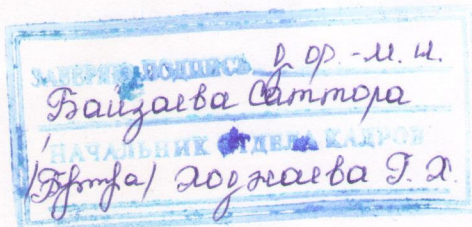 ЗАВЕРЯЮ ПОДПИСЬ д.ф.-м.н.
Байзаева Саттора
НАЧАЛЬНИК ОТДЕЛА КАДРОВ
Ходжаева Г. Х.